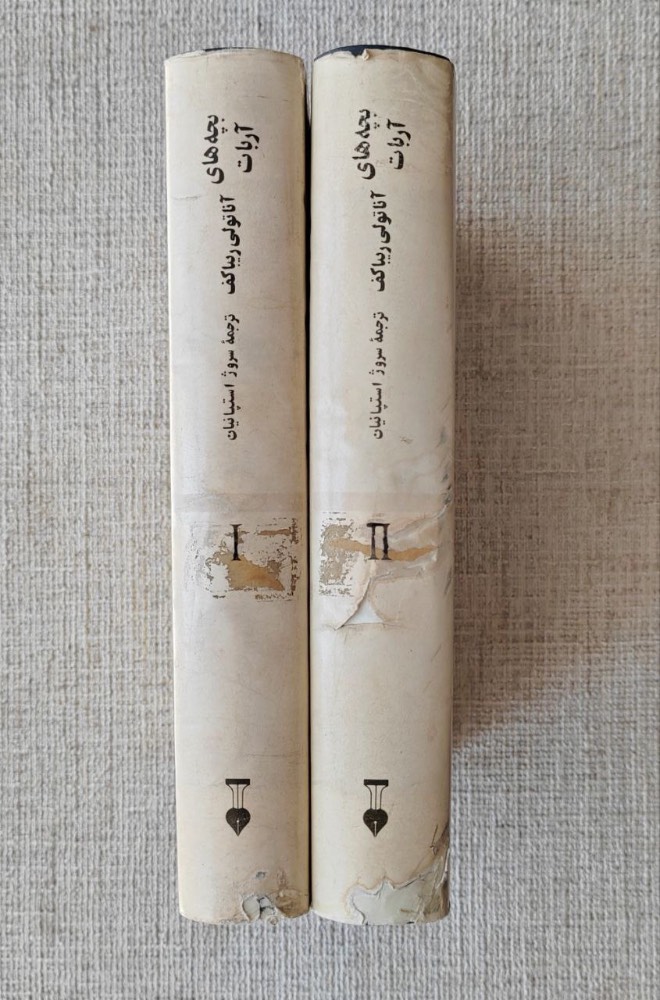 بچه‌های
آربات
آناتولی ریباکف
ترجمهٔ سروژ استپانیان
I
بچه‌های
آربات
آناتولی ریباکف
ترجمهٔ سروژ استپانیان
II